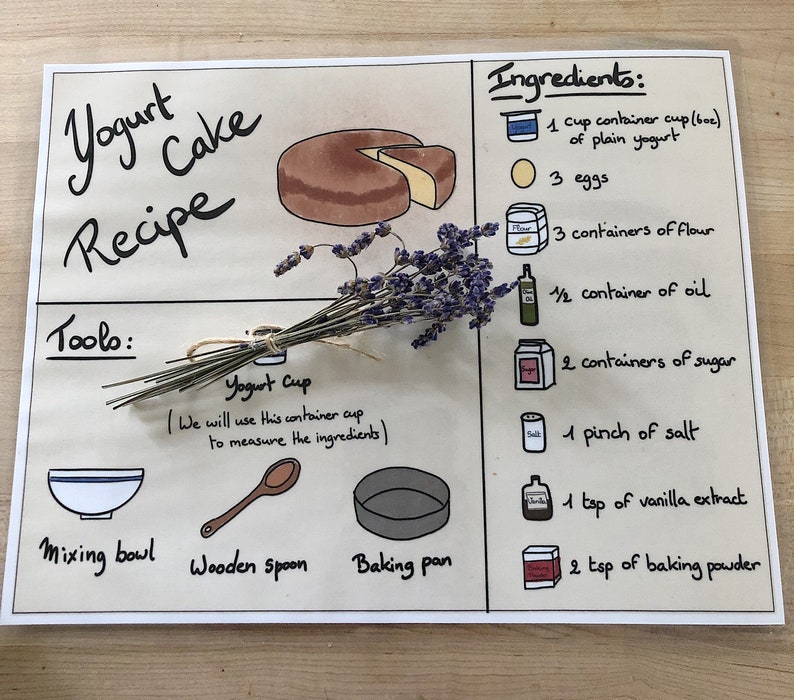 Yogurt
Cake
Recipe
Tools:
Yogurt Cup
(We will use this container cup
to measure the ingredients)
Mixing bowl
Wooden spoon
Baking pan
Ingredients:
1 cup container cup (6oz)
of plain yogurt
Yogurt
3 eggs
Flour
3 containers of flour
Olive
Oil
1/2 container of oil
Sugar
2 containers of sugar
Salt
1 pinch of salt
Vanilla
1 tsp of vanilla extract
Baking
Powder
2 tsp of baking powder